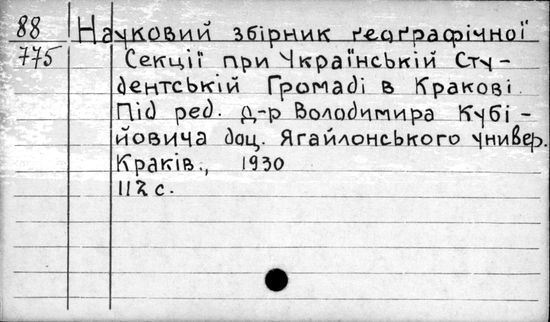 88 Науковий збірник ґеоґрафічної
775 Секції при Українській Сту-
дентській Громаді в Кракові.
Під ред. д-р Володимира Кубі-
йовича доц. Ягайлонського универ.
Краків., 1930
112 с.